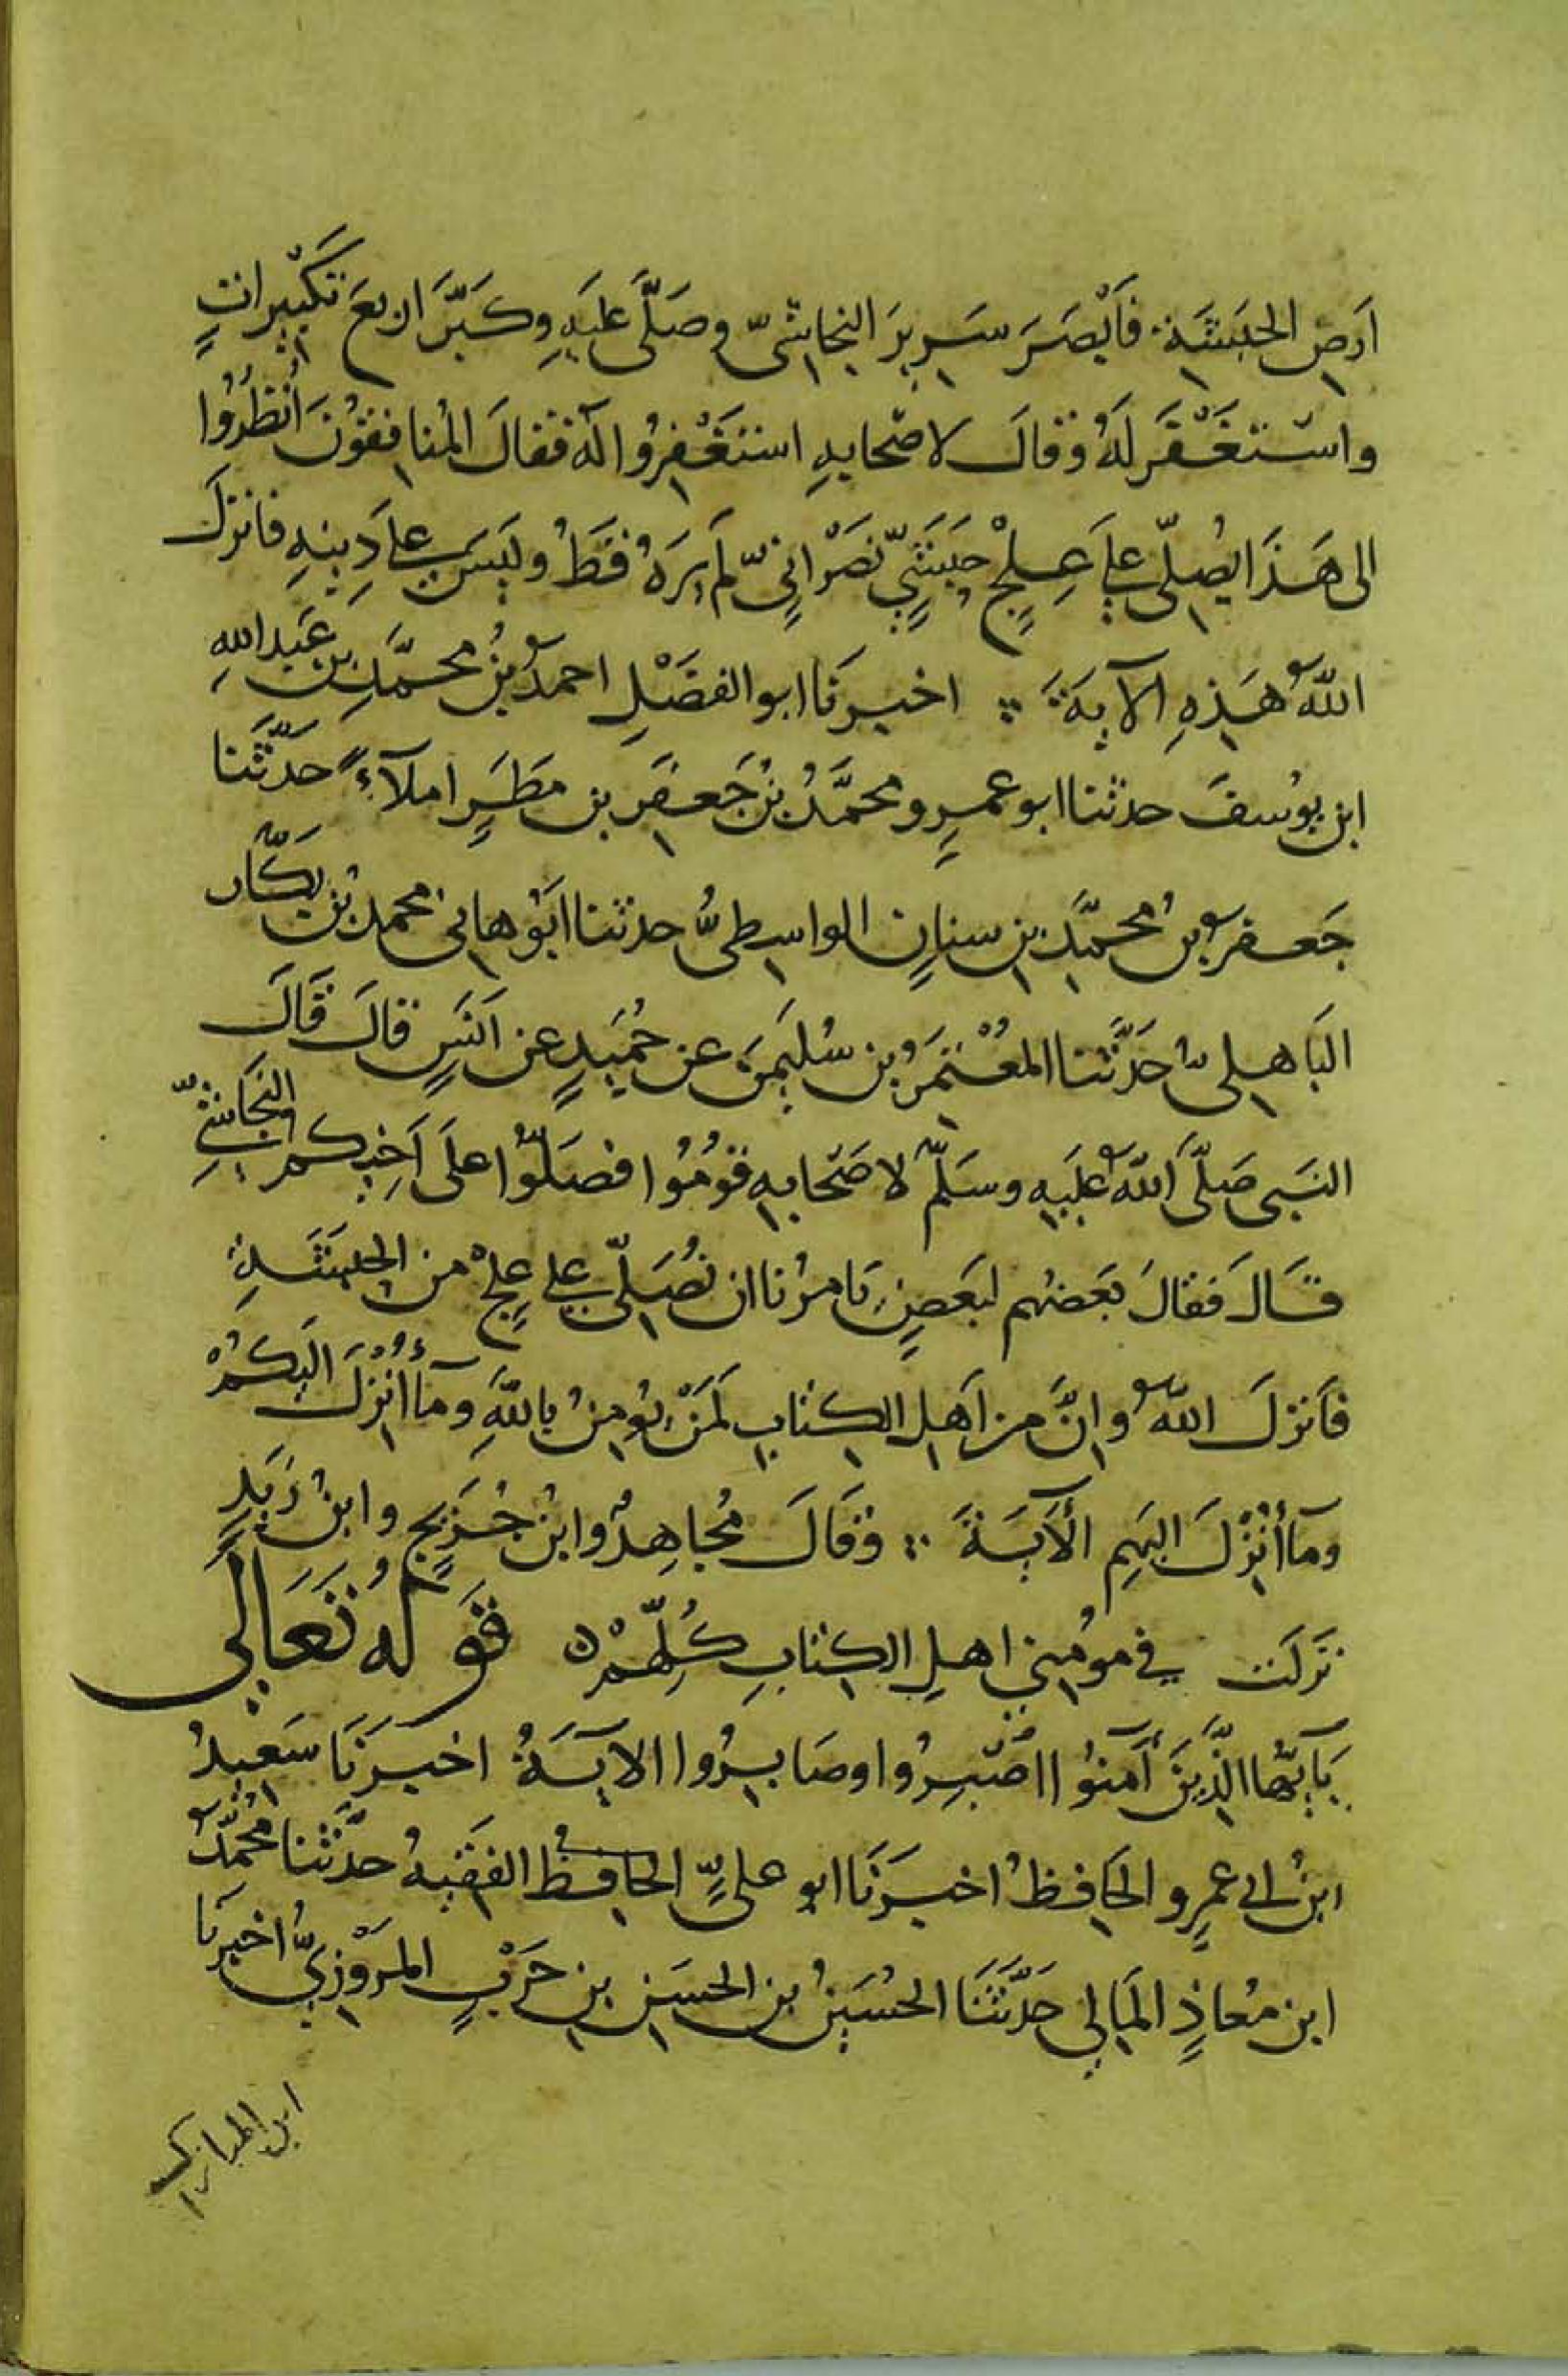 اَرضِ الحبَشَةِ فَاَبْصَرَ سَرِيرَ النجاشيّ وصَلَّى عليَهِ وكَبَّرَ اربعَ تكبيراتٍ
واسْتَغْفَرَ لَهُ وقالَ لاصْحابهِ استَغْفِرُوا لَهُ فقالَ المُنافِقُونَ اُنْظُرُوا
الى هَذَا يُصلّى على عِلْجٍ حَبَشيٍّ نَصْرَانيٍّ لَم يَرَهُ قَطُّ وليَسَ على دِينِهِ فانزلَ
اللهُ هَذِهِ الآيةَ اخبرَنَا ابو الفضَلِ احمدُ بنُ محمَّدِ بنِ عَبدِ اللهِ
ابن يوُسفَ حدثنا ابو عمرٍو محمَّدُ بنُ جَعفَرِ بن مَطَرٍ املآءً حَدَّثَنا
جَعفرُ بنُ مُحمَّدِ بنِ سنانٍ الواسِطىُّ حدثنا ابَوُ هانئ محمدُ بنُ بَكَّار
البَاهِلىُّ حَدَّثنا المعُتَمَرُ بن سُليَمنَ عن حُمَيدٍ عن اَنسٍ قالَ قَالَ
النبَى صَلَّى اللهُ عليَهِ وسَلَّم لاصَحابهِ قوُمُوا فصَلُّوا علَى اَخِيكم النجَاشيِّ
قَالَ فَقالَ بَعضهُم لبَعضٍ يَامرُنا ان نصُلَّى على عِلجٍ من الحبَشَةِ
فاَنزلَ اللهُ وانَّ من اَهلِ الكتابِ لَمَنْ يُومِنُ باللهِ ومآ أُنْزِلَ اليَكُمْ
ومآ أُنْزِلَ اليَهِم الآيةَ وقَالَ مُجاهِدٌ وابنُ جُرَيجٍ وابنُ زَيَدٍ
نَزلَت في مومُني اهلِ الكتابِ كُلّهِمْ قَولهُ تَعَالى
يَآيُّها الَّذِينَ آمَنُوا اصْبِرُوا وصَابِرُوا الايَةُ اخبرَنَا سَعِيدُ
ابنُ ابى عمرٍو الحَافِظُ اخبرَنَا ابو علىٍّ الحافِظُ الفَقيهُ حدَّثنا مُحمَّدُ
ابن مُعاذٍ المَالى حَدَّثَنَا الحُسَينُ بن الحسَنِ بنِ حَرْبٍ المَرْوَزِيُّ اخبرنا
ابن المبارك